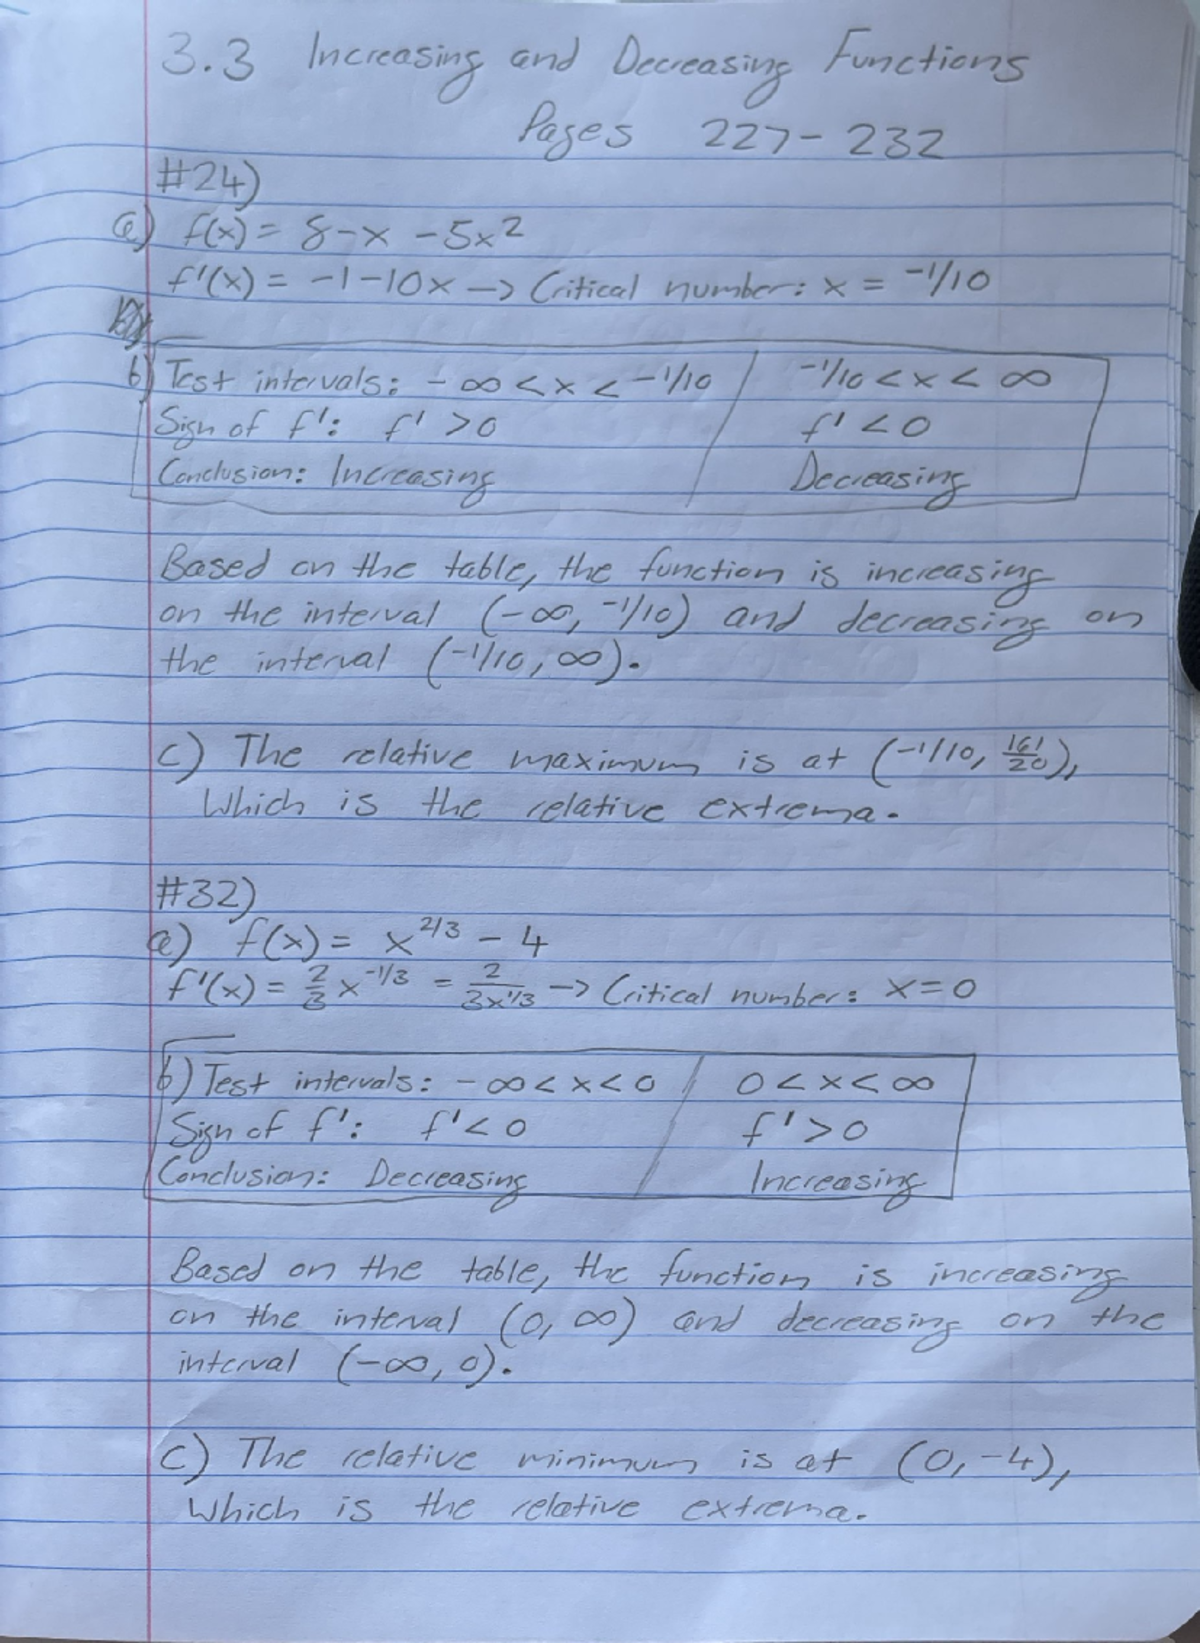 3.3 Increasing and Decreasing Functions
Pages 227-232
#24)
a) f(x) = 8-x -5x²
f'(x) = -1-10x -> Critical number: x = -1/10
b) Test intervals: -∞<x<-1/10 / -1/10<x<∞
Sign of f': f'>0 f'<0
Conclusion: Increasing Decreasing
Based on the table, the function is increasing
on the interval (-∞, -1/10) and decreasing on
the interval (-1/10, ∞).
c) The relative maximum is at (-1/10, 161/20),
Which is the relative extrema.
#32)
a) f(x) = x^2/3 - 4
f'(x) = 2/3 x^-1/3 = 2/3x^1/3 -> Critical number: x=0
b) Test intervals: -∞<x<0 / 0<x<∞
Sign of f': f'<0 f'>0
Conclusion: Decreasing Increasing
Based on the table, the function is increasing
on the interval (0, ∞) and decreasing on the
interval (-∞, 0).
c) The relative minimum is at (0,-4),
Which is the relative extrema.